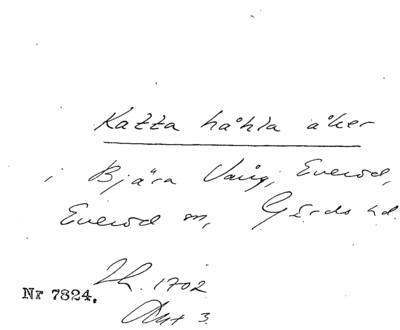 Katta håhla åker
i Bjära Vång, Everöd,
Everöd sn, Gärds hd.
Lh. 1702
Nr 7824.
Akt 3.